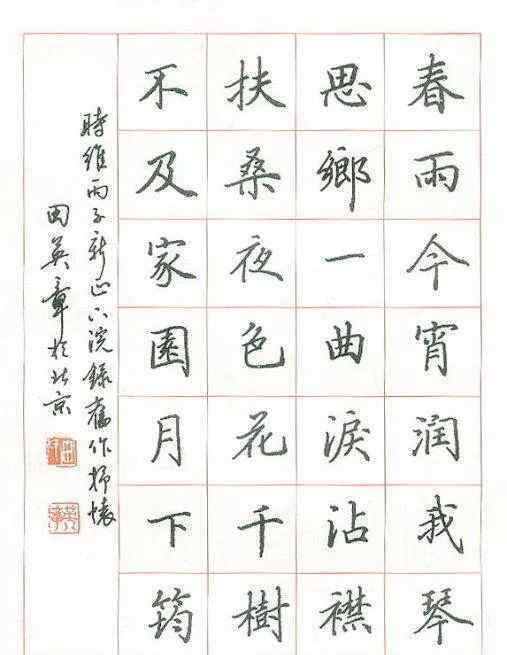 春雨今宵润我琴
思鄉一曲淚沾襟
扶桑夜色花千樹
不及家園月下筠
時維丙子新正下浣錄舊作抒懷
田英章於北京